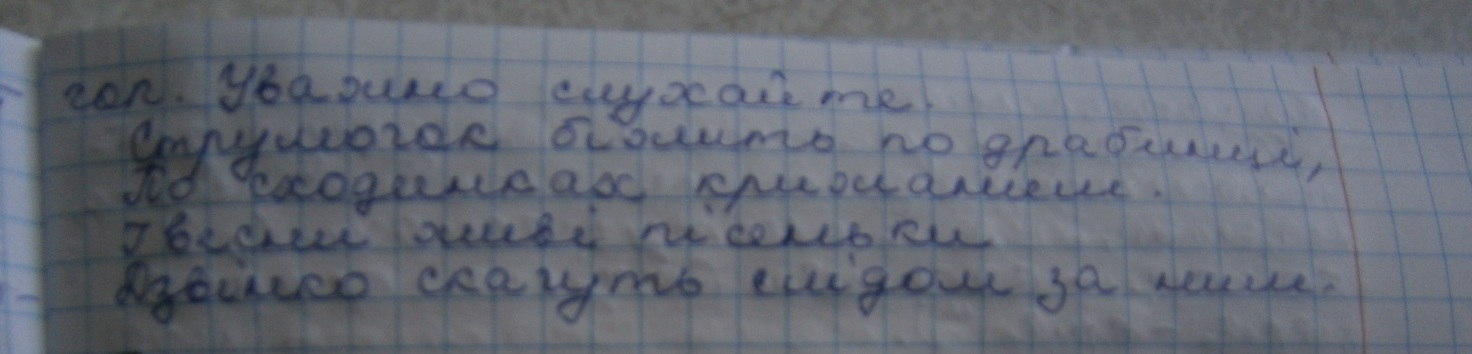 чол. Уважно слухайте.
Струмочок біжить по драбинці,
По сходинках крижаним.
І весни живі пісеньки
Дзвінко скачуть слідом за ним.